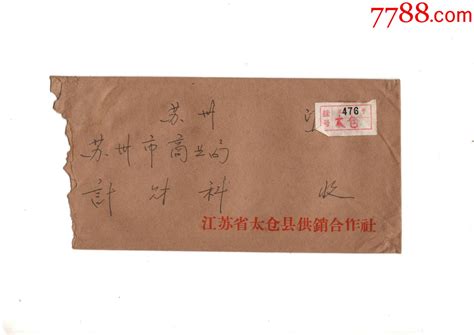 7788.com
苏州
挂号 476
太仓
苏州市商业局
計财科 收
江苏省太仓县供銷合作社